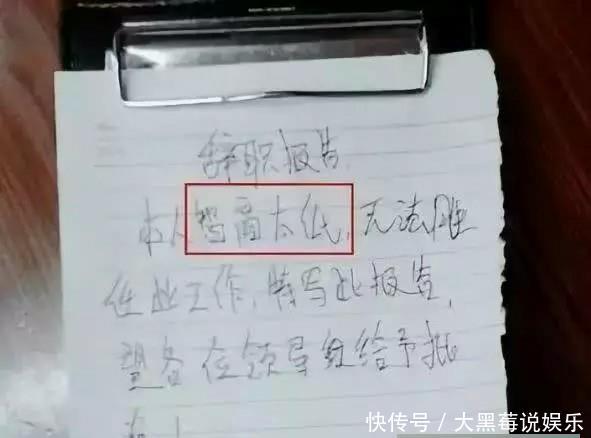 辞职报告
本人智商太低,无法胜
任此工作,特写此报告,
望各位领导给予批
快传号/大黑莓说娱乐